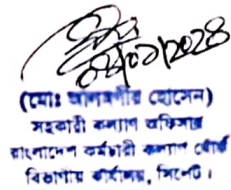 ০৮/০১/2024
(মোঃ আলমগীর হোসেন)
সহকারী কল্যাণ অফিসার
বাংলাদেশ কর্মচারী কল্যাণ বোর্ড
বিভাগীয় কার্যালয়, সিলেট।